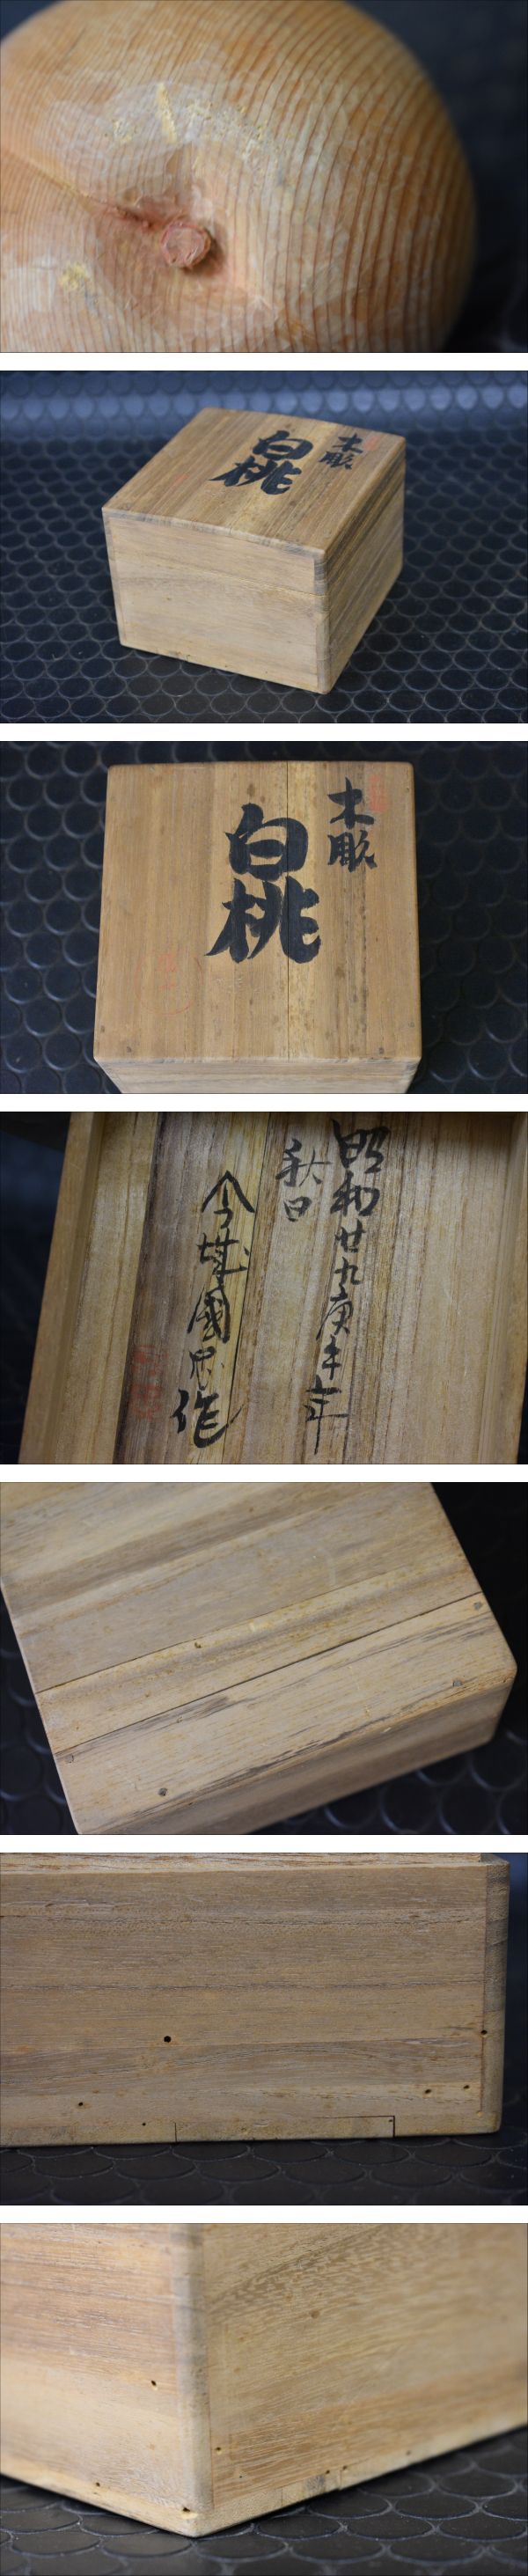 木彫
白桃
木彫
白桃
昭和廿九庚午年
秋日
今城國忠作